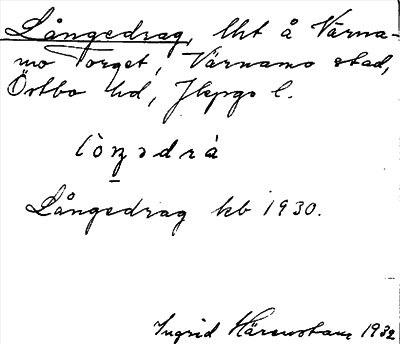 Långedrag, lht å Värna-
mo Torget, Värnamo stad,
Östbo hd, Jkpgs l.
lòŋədrá
Långedrag kb 1930.
Ingrid Härenstam 1932